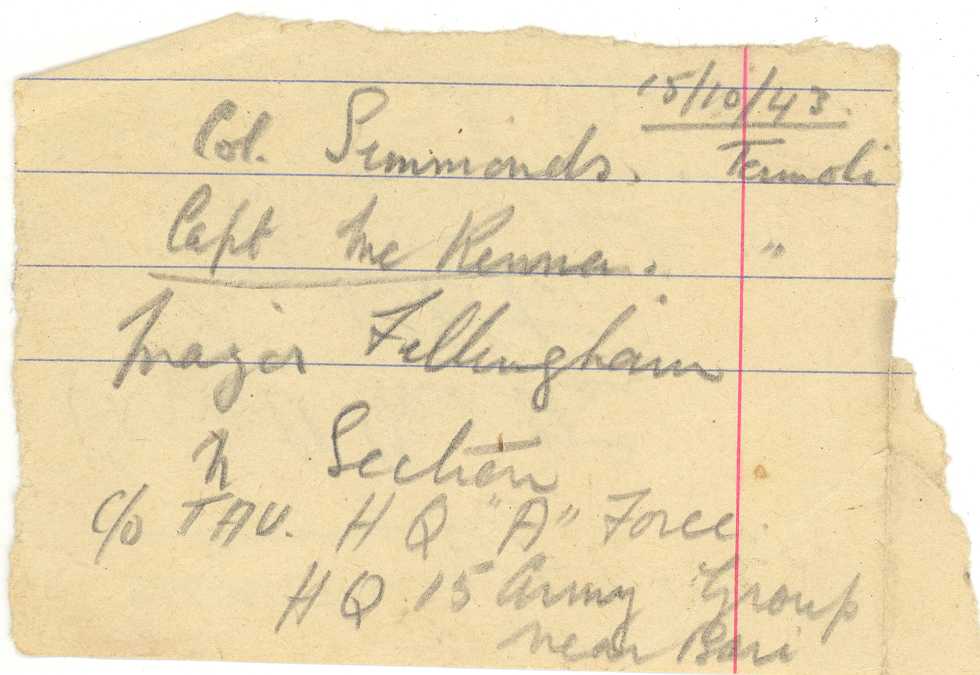 15/10/43.
Col. Simmonds. Termoli
Capt Mc Kenna. "
Major Fillingham
N Section
c/o TAU. H Q "A" Force.
H Q 15 Army Group
near Bari